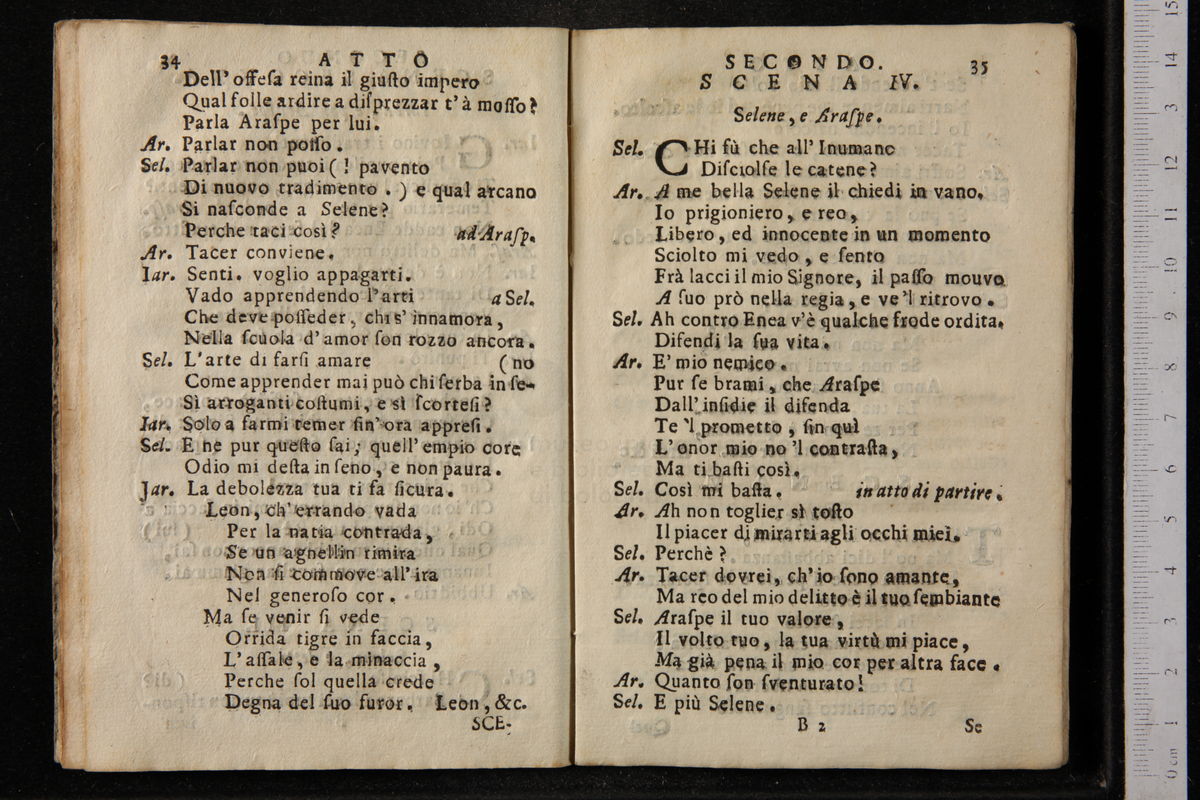 34 A T T O
Dell' offeſa reina il giuſto impero
Qual folle ardire a diſprezzar t' à moſſo?
Parla Araſpe per lui.
Ar. Parlar non poſſo.
Sel. Parlar non puoi (! pavento
Di nuovo tradimento . ) e qual arcano
Si naſconde a Selene?
Perche taci così? ad Araſp.
Ar. Tacer conviene.
Iar. Senti. voglio appagarti.
Vado apprendendo l'arti a Sel.
Che deve poſſeder, chi s' innamora,
Nella ſcuola d' amor ſon rozzo ancora.
Sel. L'arte di farſi amare (no
Come apprender mai può chi ſerba in ſe-
Sì arroganti coſtumi, e sì ſcorteſi?
Iar. Solo a farmi temer ſin' ora appreſi.
Sel. E ne pur queſto ſai; quell' empio core
Odio mi deſta in ſeno, e non paura.
Jar. La debolezza tua ti fa ſicura.
Leon, ch' errando vada
Per la natia contrada,
Se un agnellin rimira
Non ſi commove all' ira
Nel generoſo cor.
Ma ſe venir ſi vede
Orrida tigre in faccia,
L' aſſale, e la minaccia,
Perche ſol quella crede
Degna del ſuo furor. Leon, &c.
SCE-
SECONDO. 35
S C E N A IV.
Selene, e Araſpe.
Sel. CHi fù che all' Inumano
Diſciolſe le catene?
Ar. A me bella Selene il chiedi in vano.
Io prigioniero, e reo,
Libero, ed innocente in un momento
Sciolto mi vedo, e ſento
Frà lacci il mio Signore, il paſſo mouvo
A ſuo prò nella regia, e ve'l ritrovo.
Sel. Ah contro Enea v'è qualche frode ordita.
Difendi la ſua vita.
Ar. E' mio nemico.
Pur ſe brami, che Araſpe
Dall' inſidie il difenda
Te 'l prometto, ſin quì
L' onor mio no 'l contraſta,
Ma ti baſti così.
Sel. Così mi baſta. in atto di partire.
Ar. Ah non toglier sì toſto
Il piacer di mirarti agli occhi miei.
Sel. Perchè?
Ar. Tacer dovrei, ch' io ſono amante,
Ma reo del mio delitto è il tuo ſembiante
Sel. Araſpe il tuo valore,
Il volto tuo, la tua virtù mi piace,
Ma già pena il mio cor per altra face.
Ar. Quanto ſon ſventurato!
Sel. E più Selene.
B 2 Se